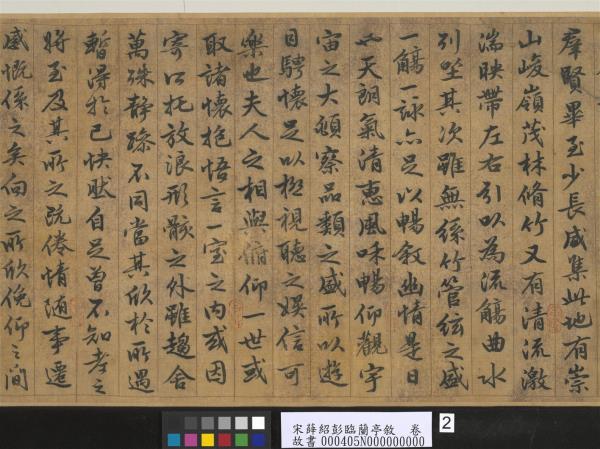 羣賢畢至少長咸集此地有崇
山峻嶺茂林脩竹又有清流激
湍映帶左右引以為流觴曲水
列坐其次雖無絲竹管絃之盛
一觴一詠亦足以暢敘幽情是日
也天朗氣清惠風和暢仰觀宇
宙之大頫察品類之盛所以遊
目騁懷足以極視聽之娛信可
樂也夫人之相與俯仰一世或
取諸懷抱悟言一室之內或因
寄所托放浪形骸之外雖趣舍
萬殊靜躁不同當其欣於所遇
暫得於己快然自足曾不知老之
將至及其所之既倦情隨事遷
感慨係之矣向之所欣俛仰之間
宋薛紹彭臨蘭亭敘 卷
故書 000405N000000000
2